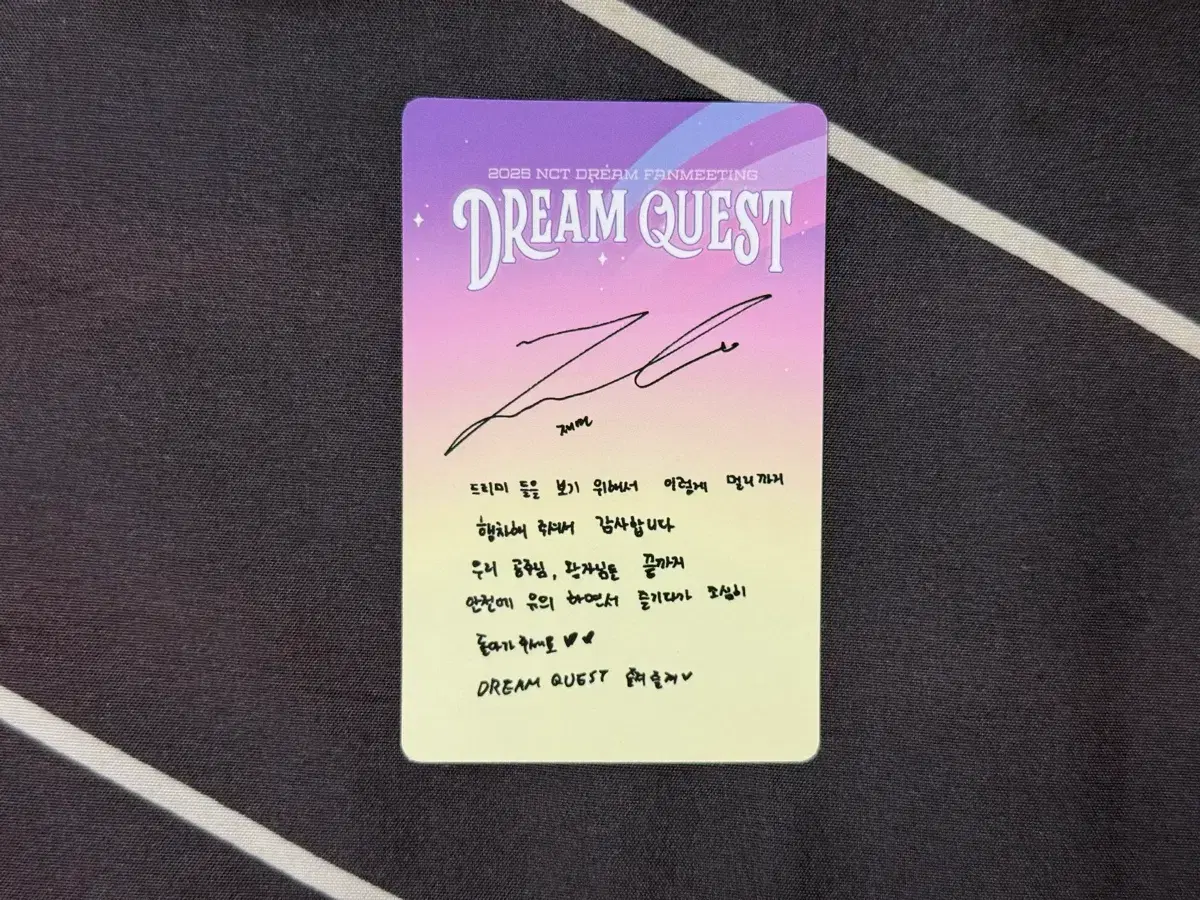 2025 NCT DREAM FANMEETING
DREAM QUEST
재민
드리미 들을 보기 위해서 이렇게 멀리까지
행차해 주셔서 감사합니다
우리 공주님, 왕자님들 끝까지
안전에 유의 하면서 즐기다가 조심히
돌아가 주세요
DREAM QUEST